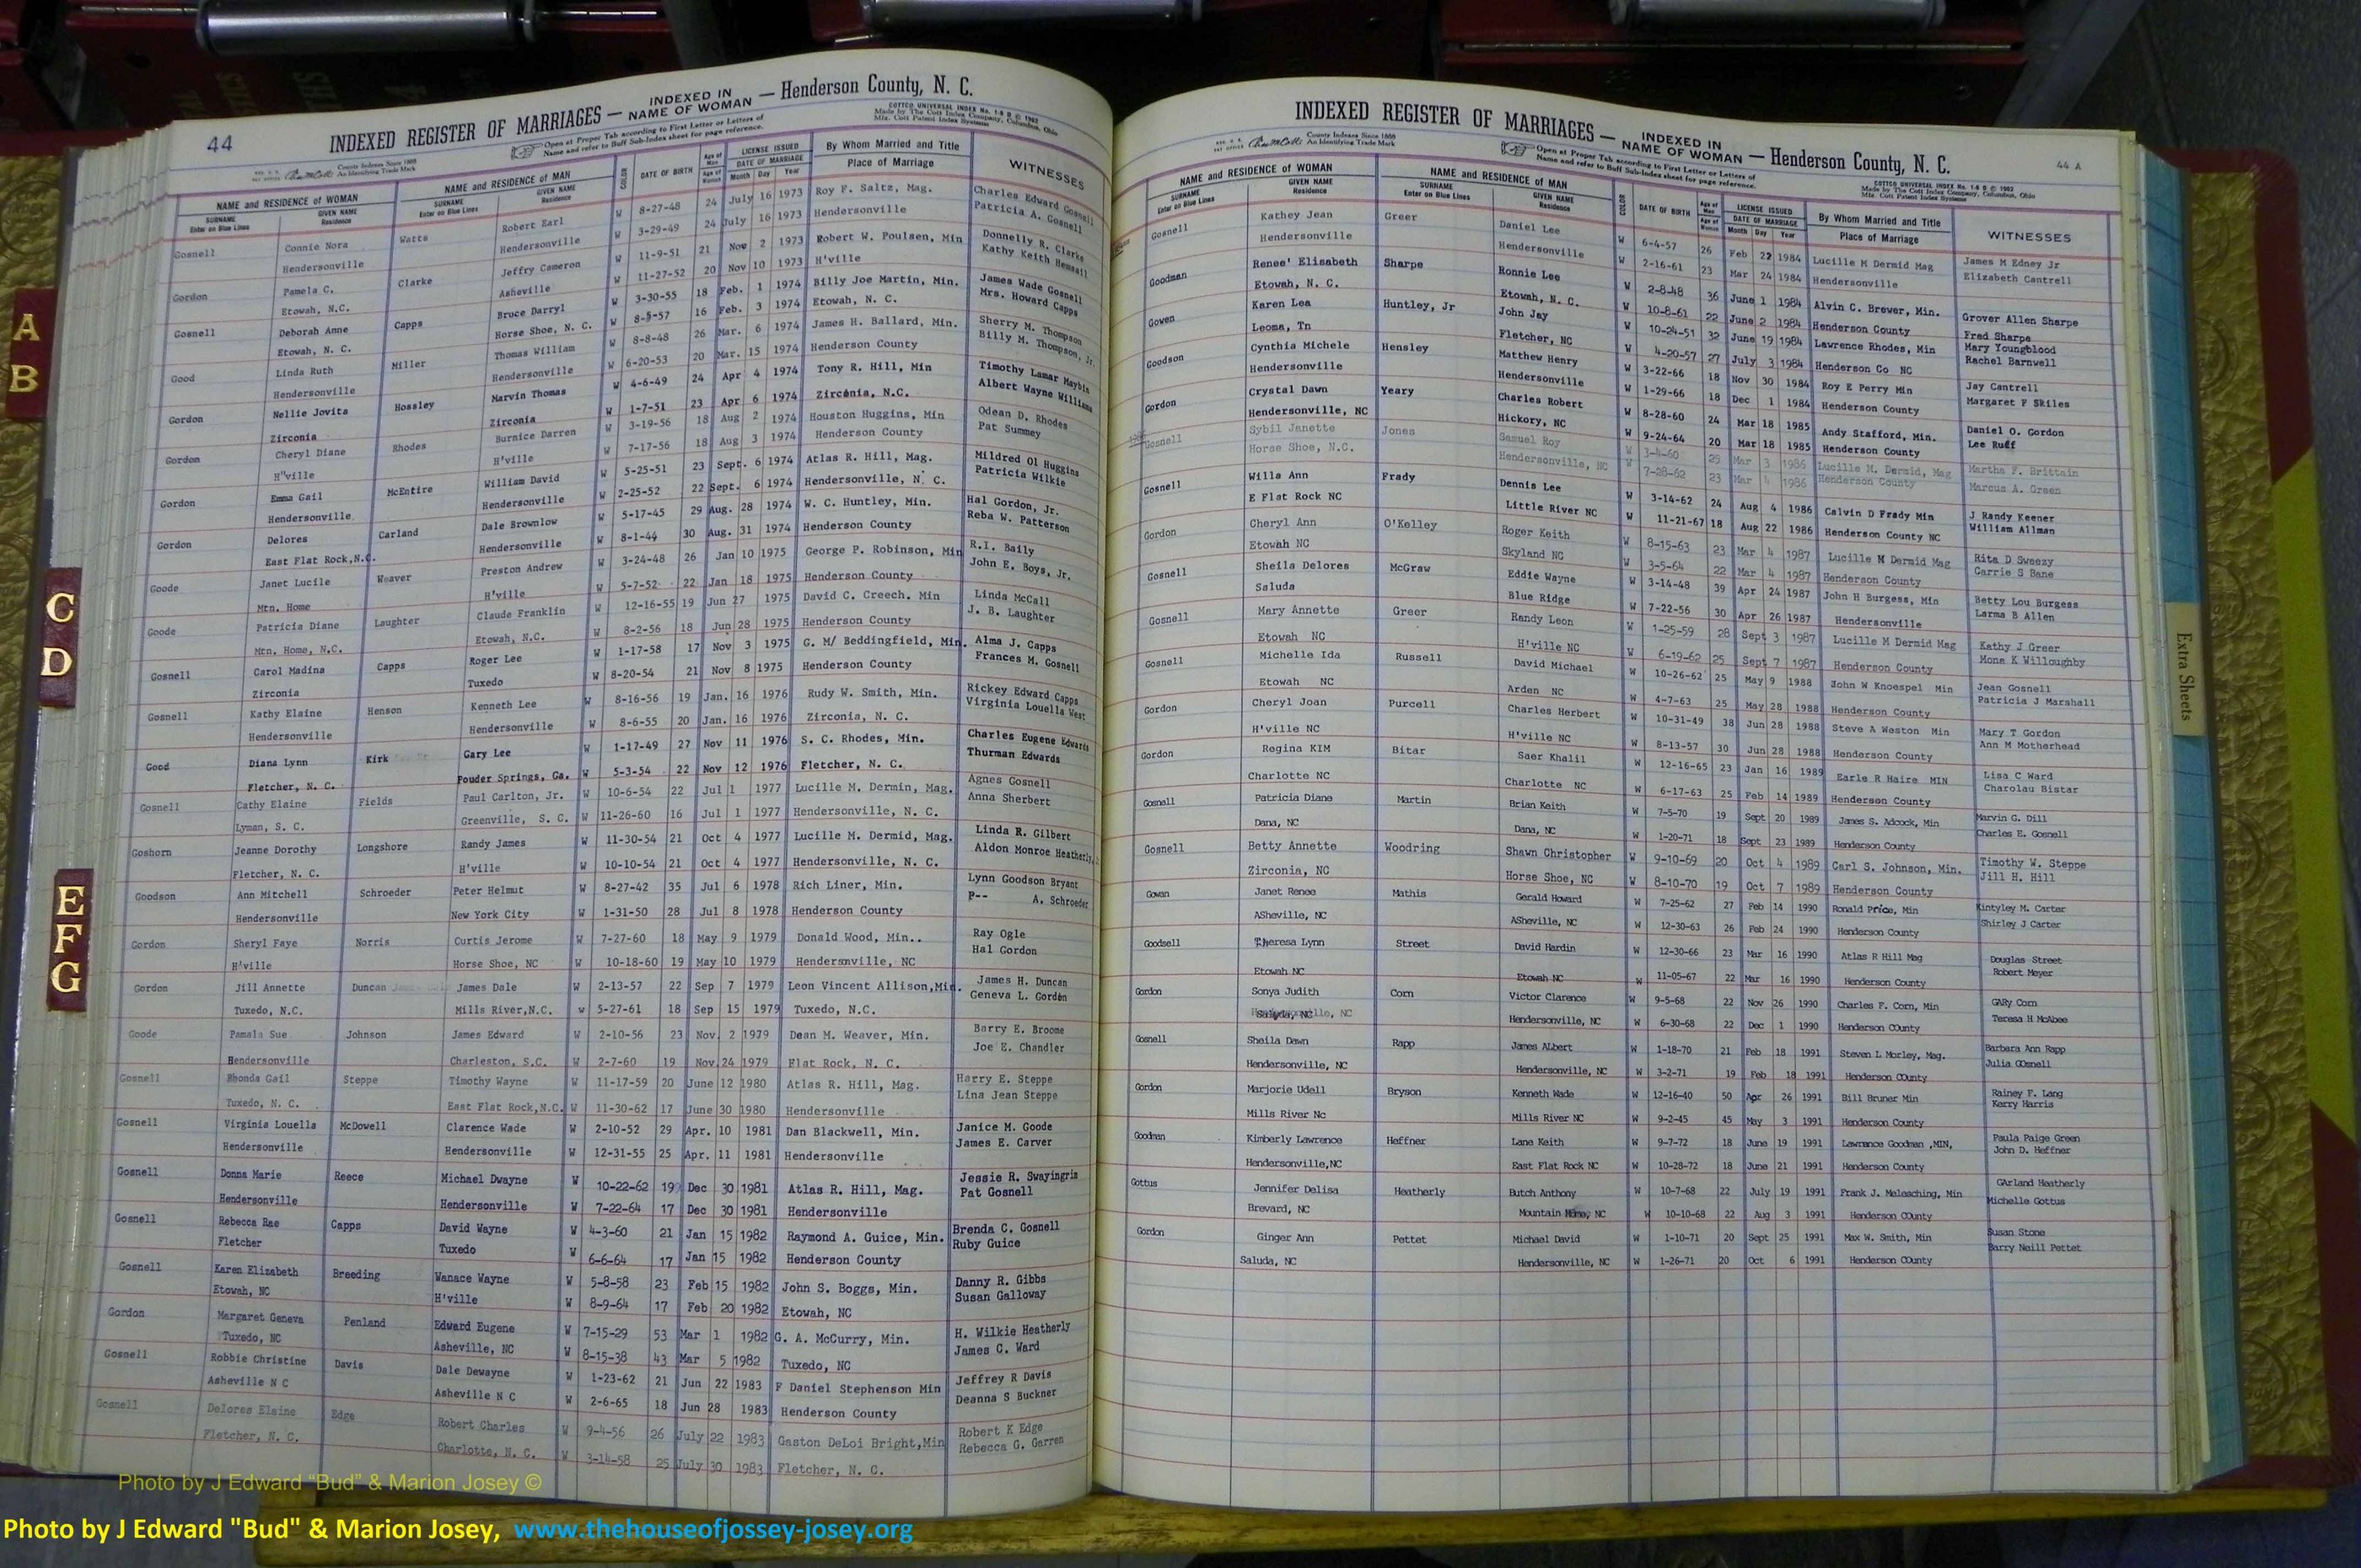 44
INDEXED REGISTER OF MARRIAGES — INDEXED IN NAME OF WOMAN — Henderson County, N. C.
County Indexes Since 1888
An Identifying Trade Mark
Open at Proper Tab according to First Letter or Letters of
Name and refer to Buff Sub-Index sheet for page reference.
COTTCO UNIVERSAL INDEX No. 1-8 D © 1962
Made by The Cott Index Company, Columbus, Ohio
Mfg. Cott Patent Index Systems
NAME and RESIDENCE of WOMAN NAME and RESIDENCE of MAN COLOR DATE OF BIRTH Age of Man LICENSE ISSUED By Whom Married and Title WITNESSES
SURNAME GIVEN NAME SURNAME GIVEN NAME Age of Woman DATE OF MARRIAGE Place of Marriage
Enter on Blue Lines Residence Enter on Blue Lines Residence Month Day Year
Gosnell Connie Nora Watts Robert Earl W 8-27-48 24 July 16 1973 Roy F. Saltz, Mag. Charles Edward Gosnell
Hendersonville Hendersonville W 3-29-49 24 July 16 1973 Hendersonville Patricia A. Gosnell
Gordon Pamela C. Clarke Jeffry Cameron W 11-9-51 21 Nov 2 1973 Robert W. Poulsen, Min Donnelly R. Clarke
Etowah, N.C. Asheville W 11-27-52 20 Nov 10 1973 H'ville Kathy Keith
Gosnell Deborah Anne Capps Bruce Darryl W 3-30-55 18 Feb. 1 1974 Billy Joe Martin, Min. James Wade Gosnell
Etowah, N. C. Horse Shoe, N. C. W 8-5-57 16 Feb. 3 1974 Etowah, N. C. Mrs. Howard Capps
Good Linda Ruth Miller Thomas William W 8-8-48 26 Mar. 6 1974 James H. Ballard, Min. Sherry M. Thompson
Hendersonville Hendersonville W 6-20-53 20 Mar. 15 1974 Henderson County Billy M. Thompson, Jr.
Gordon Nellie Jovita Hossley Marvin Thomas W 4-6-49 24 Apr 4 1974 Tony R. Hill, Min Timothy Lamar Maybin
Zirconia Zirconia W 1-7-51 23 Apr 6 1974 Zirconia, N.C. Albert Wayne Williams
Gordon Cheryl Diane Rhodes Burnice Darren W 3-19-56 18 Aug 2 1974 Houston Huggins, Min Odean D. Rhodes
H"ville H'ville W 7-17-56 18 Aug 3 1974 Henderson County Pat Summey
Gordon Emma Gail McEntire William David W 5-25-51 23 Sept. 6 1974 Atlas R. Hill, Mag. Mildred Ol Huggins
Hendersonville Hendersonville W 2-25-52 22 Sept. 6 1974 Hendersonville, N. C. Patricia Wilkie
Gordon Delores Carland Dale Brownlow W 5-17-45 29 Aug. 28 1974 W. C. Huntley, Min. Hal Gordon, Jr.
East Flat Rock,N.C. Hendersonville W 8-1-44 30 Aug. 31 1974 Henderson County Reba W. Patterson
Goode Janet Lucile Weaver Preston Andrew W 3-24-48 26 Jan 10 1975 George P. Robinson, Min R.I. Baily
Mtn. Home H'ville W 5-7-52 22 Jan 18 1975 Henderson County John E. Boys, Jr.
Goode Patricia Diane Laughter Claude Franklin W 12-16-55 19 Jun 27 1975 David C. Creech. Min Linda McCall
Mtn. Home, N.C. Etowah, N.C. W 8-2-56 18 Jun 28 1975 Henderson County J. B. Laughter
Gosnell Carol Madina Capps Roger Lee W 1-17-58 17 Nov 3 1975 G. M/ Beddingfield, Min. Alma J. Capps
Zirconia Tuxedo W 8-20-54 21 Nov 8 1975 Henderson County Frances M. Gosnell
Gosnell Kathy Elaine Henson Kenneth Lee W 8-16-56 19 Jan. 16 1976 Rudy W. Smith, Min. Rickey Edward Capps
Hendersonville Hendersonville W 8-6-55 20 Jan. 16 1976 Zirconia, N. C. Virginia Louella West
Good Diana Lynn Kirk Gary Lee W 1-17-49 27 Nov 11 1976 S. C. Rhodes, Min. Charles Eugene Edwards
Fletcher, N. C. Pouder Springs, Ga. W 5-3-54 22 Nov 12 1976 Fletcher, N. C. Thurman Edwards
Gosnell Cathy Elaine Fields Paul Carlton, Jr. W 10-6-54 22 Jul 1 1977 Lucille M. Dermin, Mag. Agnes Gosnell
Lyman, S. C. Greenville, S. C. W 11-26-60 16 Jul 1 1977 Hendersonville, N. C. Anna Sherbert
Goshorn Jeanne Dorothy Longshore Randy James W 11-30-54 21 Oct 4 1977 Lucille M. Dermid, Mag. Linda R. Gilbert
Fletcher, N. C. H'ville W 10-10-54 21 Oct 4 1977 Hendersonville, N. C. Aldon Monroe Heatherly,
Goodson Ann Mitchell Schroeder Peter Helmut W 8-27-42 35 Jul 6 1978 Rich Liner, Min. Lynn Goodson Bryant
Hendersonville New York City W 1-31-50 28 Jul 8 1978 Henderson County P-- A. Schroeder
Gordon Sheryl Faye Norris Curtis Jerome W 7-27-60 18 May 9 1979 Donald Wood, Min.. Ray Ogle
H'ville Horse Shoe, NC W 10-18-60 19 May 10 1979 Hendersnville, NC Hal Gordon
Gordon Jill Annette Duncan James Dale W 2-13-57 22 Sep 7 1979 Leon Vincent Allison,Min. James H. Duncan
Tuxedo, N.C. Mills River,N.C. w 5-27-61 18 Sep 15 1979 Tuxedo, N.C. Geneva L. Gordén
Goode Pamala Sue Johnson James Edward W 2-10-56 23 Nov. 2 1979 Dean M. Weaver, Min. Barry E. Broome
Hendersonville Charleston, S.C. W 2-7-60 19 Nov.24 1979 Flat Rock, N. C. Joe E. Chandler
Gosnell Rhonda Gail Steppe Timothy Wayne W 11-17-59 20 June 12 1980 Atlas R. Hill, Mag. Harry E. Steppe
Tuxedo, N. C. East Flat Rock,N.C. W 11-30-62 17 June 30 1980 Hendersonville Lina Jean Steppe
Gosnell Virginia Louella McDowell Clarence Wade W 2-10-52 29 Apr. 10 1981 Dan Blackwell, Min. Janice M. Goode
Hendersonville Hendersonville W 12-31-55 25 Apr. 11 1981 Hendersonville James E. Carver
Gosnell Donna Marie Reece Michael Dwayne W 10-22-62 19 Dec 30 1981 Atlas R. Hill, Mag. Jessie R. Swayingria
Hendersonville Hendersonville W 7-22-64 17 Dec 30 1981 Hendersonville Pat Gosnell
Gosnell Rebecca Rae Capps David Wayne W 4-3-60 21 Jan 15 1982 Raymond A. Guice, Min. Brenda C. Gosnell
Fletcher Tuxedo W 6-6-64 17 Jan 15 1982 Henderson County Ruby Guice
Gosnell Karen Elizabeth Breeding Wanace Wayne W 5-8-58 23 Feb 15 1982 John S. Boggs, Min. Danny R. Gibbs
Etowah, NC H'ville W 8-9-64 17 Feb 20 1982 Etowah, NC Susan Galloway
Gordon Margaret Geneva Penland Edward Eugene W 7-15-29 53 Mar 1 1982 G. A. McCurry, Min. H. Wilkie Heatherly
Tuxedo, NC Asheville, NC W 8-15-38 43 Mar 5 1982 Tuxedo, NC James C. Ward
Gosnell Robbie Christine Davis Dale Dewayne W 1-23-62 21 Jun 22 1983 F Daniel Stephenson Min Jeffrey R Davis
Asheville N C Asheville N C W 2-6-65 18 Jun 28 1983 Henderson County Deanna S Buckner
Gosnell Delores Elaine Edge Robert Charles W 9-4-56 26 July 22 1983 Gaston DeLoi Bright,Min Robert K Edge
Fletcher, N. C. Charlotte, N. C. W 3-14-58 25 July 30 1983 Fletcher, N. C. Rebecca G. Garren
44 A
INDEXED REGISTER OF MARRIAGES — INDEXED IN NAME OF WOMAN — Henderson County, N. C.
County Indexes Since 1888
An Identifying Trade Mark
Open at Proper Tab according to First Letter or Letters of
Name and refer to Buff Sub-Index sheet for page reference.
COTTCO UNIVERSAL INDEX No. 1-8 D © 1962
Made by The Cott Index Company, Columbus, Ohio
Mfg. Cott Patent Index Systems
NAME and RESIDENCE of WOMAN NAME and RESIDENCE of MAN COLOR DATE OF BIRTH Age of Man LICENSE ISSUED By Whom Married and Title WITNESSES
SURNAME GIVEN NAME SURNAME GIVEN NAME Age of Woman DATE OF MARRIAGE Place of Marriage
Enter on Blue Lines Residence Enter on Blue Lines Residence Month Day Year
Gosnell Kathey Jean Greer Daniel Lee W 6-4-57 26 Feb 22 1984 Lucille M Dermid Mag James M Edney Jr
Hendersonville Hendersonville W 2-16-61 23 Mar 24 1984 Hendersonville Elizabeth Cantrell
Goodman Renee' Elisabeth Sharpe Ronnie Lee W 2-8-48 36 June 1 1984 Alvin C. Brewer, Min. Grover Allen Sharpe
Etowah, N. C. Etowah, N. C. W 10-8-61 22 June 2 1984 Henderson County Fred Sharpe
Goven Karen Lea Huntley, Jr John Jay W 10-24-51 32 June 19 1984 Lawrence Rhodes, Min Mary Youngblood
Leoma, Tn Fletcher, NC W 4-20-57 27 July 3 1984 Henderson Co NC Rachel Barnwell
Goodson Cynthia Michele Hensley Matthew Henry W 3-22-66 18 Nov 30 1984 Roy E Perry Min Jay Cantrell
Hendersonville Hendersonville W 1-29-66 18 Dec 1 1984 Henderson County Margaret F Skiles
Gordon Crystal Dawn Yeary Charles Robert W 8-28-60 24 Mar 18 1985 Andy Stafford, Min. Daniel O. Gordon
Hendersonville, NC Hickory, NC W 9-24-64 20 Mar 18 1985 Henderson County Lee Ruff
Gosnell Sybil Janette Jones Samuel Roy W 3-4-60 25 Mar 3 1986 Lucille M. Dermid, Mag Martha F. Brittain
Horse Shoe, N.C. Hendersonville, NC W 7-28-62 23 Mar 4 1986 Henderson County Marcus A. Green
Gosnell Willa Ann Frady Dennis Lee W 3-14-62 24 Aug 4 1986 Calvin D Frady Min J Randy Keener
E Flat Rock NC Little River NC W 11-21-67 18 Aug 22 1986 Henderson County NC William Allman
Gordon Cheryl Ann O'Kelley Roger Keith W 8-15-63 23 Mar 4 1987 Lucille M Dermid Mag Rita D Sweezy
Etowah NC Skyland NC W 3-5-64 22 Mar 4 1987 Henderson County Carrie S Bane
Gosnell Sheila Delores McGraw Eddie Wayne W 3-14-48 39 Apr 24 1987 John H Burgess, Min Betty Lou Burgess
Saluda Blue Ridge W 7-22-56 30 Apr 26 1987 Hendersonville Larma B Allen
Gosnell Mary Annette Greer Randy Leon W 1-25-59 28 Sept 3 1987 Lucille M Dermid Mag Kathy J Greer
Etowah NC H'ville NC W 6-19-62 25 Sept 7 1987 Henderson County Mona K Willoughby
Gosnell Michelle Ida Russell David Michael W 10-26-62 25 May 9 1988 John W Knoespel Min Jean Gosnell
Etowah NC Arden NC W 4-7-63 25 May 28 1988 Henderson County Patricia J Marshall
Gordon Cheryl Joan Purcell Charles Herbert W 10-31-49 38 Jun 28 1988 Steve A Weston Min Mary T Gordon
H'ville NC H'ville NC W 8-13-57 30 Jun 28 1988 Henderson County Ann M Motherhead
Gordon Regina KIM Bitar Saer Khalil W 12-16-65 23 Jan 16 1989 Earle R Haire MIN Lisa C Ward
Charlotte NC Charlotte NC W 6-17-63 25 Feb 14 1989 Henderson County Charolau Bistar
Gosnell Patricia Diane Martin Brian Keith W 7-5-70 19 Sept 20 1989 James S. Adcock, Min Marvin G. Dill
Dana, NC Dana, NC W 1-20-71 18 Sept 23 1989 Henderson County Charles E. Gosnell
Gosnell Betty Annette Woodring Shawn Christopher W 9-10-69 20 Oct 4 1989 Carl S. Johnson, Min. Timothy W. Steppe
Zirconia, NC Horse Shoe, NC W 8-10-70 19 Oct 7 1989 Henderson County Jill H. Hill
Gowan Janet Renee Mathis Gerald Howard W 7-25-62 27 Feb 14 1990 Ronald Price, Min Kintyley M. Carter
ASheville, NC ASheville, NC W 12-30-63 26 Feb 24 1990 Henderson County Shirley J Carter
Goodsell Theresa Lynn Street David Hardin W 12-30-66 23 Mar 16 1990 Atlas R Hill Mag Douglas Street
Etowah NC Etowah NC W 11-05-67 22 Mar 16 1990 Henderson County Robert Meyer
Gordon Sonya Judith Corn Victor Clarence W 9-5-68 22 Nov 26 1990 Charles F. Corn, Min GARy Corn
Saluda, NC Hendersonville, NC W 6-30-68 22 Dec 1 1990 Henderson COunty Teresa H McAbee
Gosnell Sheila Dawn Rapp James Albert W 1-18-70 21 Feb 18 1991 Steven L Morley, Mag. Barbara Ann Rapp
Hendersonville, NC Hendersonville, NC W 3-2-71 19 Feb 18 1991 Henderson COunty Julia GOsnell
Gordon Marjorie Udell Bryson Kenneth Wade W 12-16-40 50 Apr 26 1991 Bill Bruner Min Rainey F. Lang
Mills River Nc Mills River NC W 9-2-45 45 May 3 1991 Henderson County Kerry Harris
Goodman Kimberly Lawrence Heffner Lane Keith W 9-7-72 18 June 19 1991 Lawrence Goodman ,MIN, Paula Paige Green
Hendersonville,NC East Flat Rock NC W 10-28-72 18 June 21 1991 Henderson County John D. Heffner
Gottus Jennifer Delisa Heatherly Butch Anthony W 10-7-68 22 July 19 1991 Frank J. Melesching, Min GArland Heatherly
Brevard, NC Mountain Home, NC W 10-10-68 22 Aug 3 1991 Henderson COunty Michelle Gottus
Gordon Ginger Ann Pettet Michael David W 1-10-71 20 Sept 25 1991 Max W. Smith, Min Susan Stone
Saluda, NC Hendersonville, NC W 1-26-71 20 Oct 6 1991 Henderson COunty Barry Neill Pettet
A
B
C
D
E
F
G
Extra Sheets
Photo by J Edward “Bud” & Marion Josey ©
Photo by J Edward "Bud" & Marion Josey, www.thehouseofjossey-josey.org